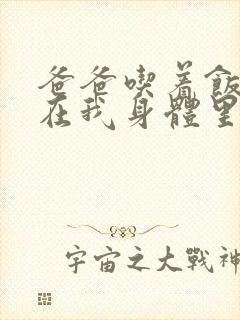 爸爸喫着飯
在我身體里
宇宙之大戰神